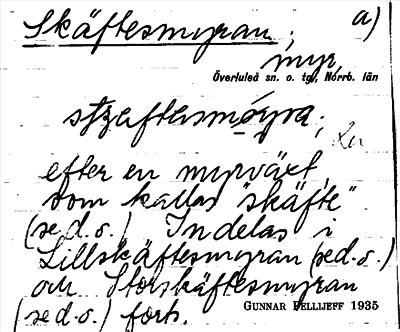 Skäftesmyran; a)
myr,
Överluleå sn. o. tg, Norrb. län
efter en myrväxt,
som kallas "skäfte"
(se d. o.) Indelas i
Lillskäftesmyran (se d. o.)
och Storskäftesmyran
(se d. o.) forts.
GUNNAR PELLIJEFF 1935